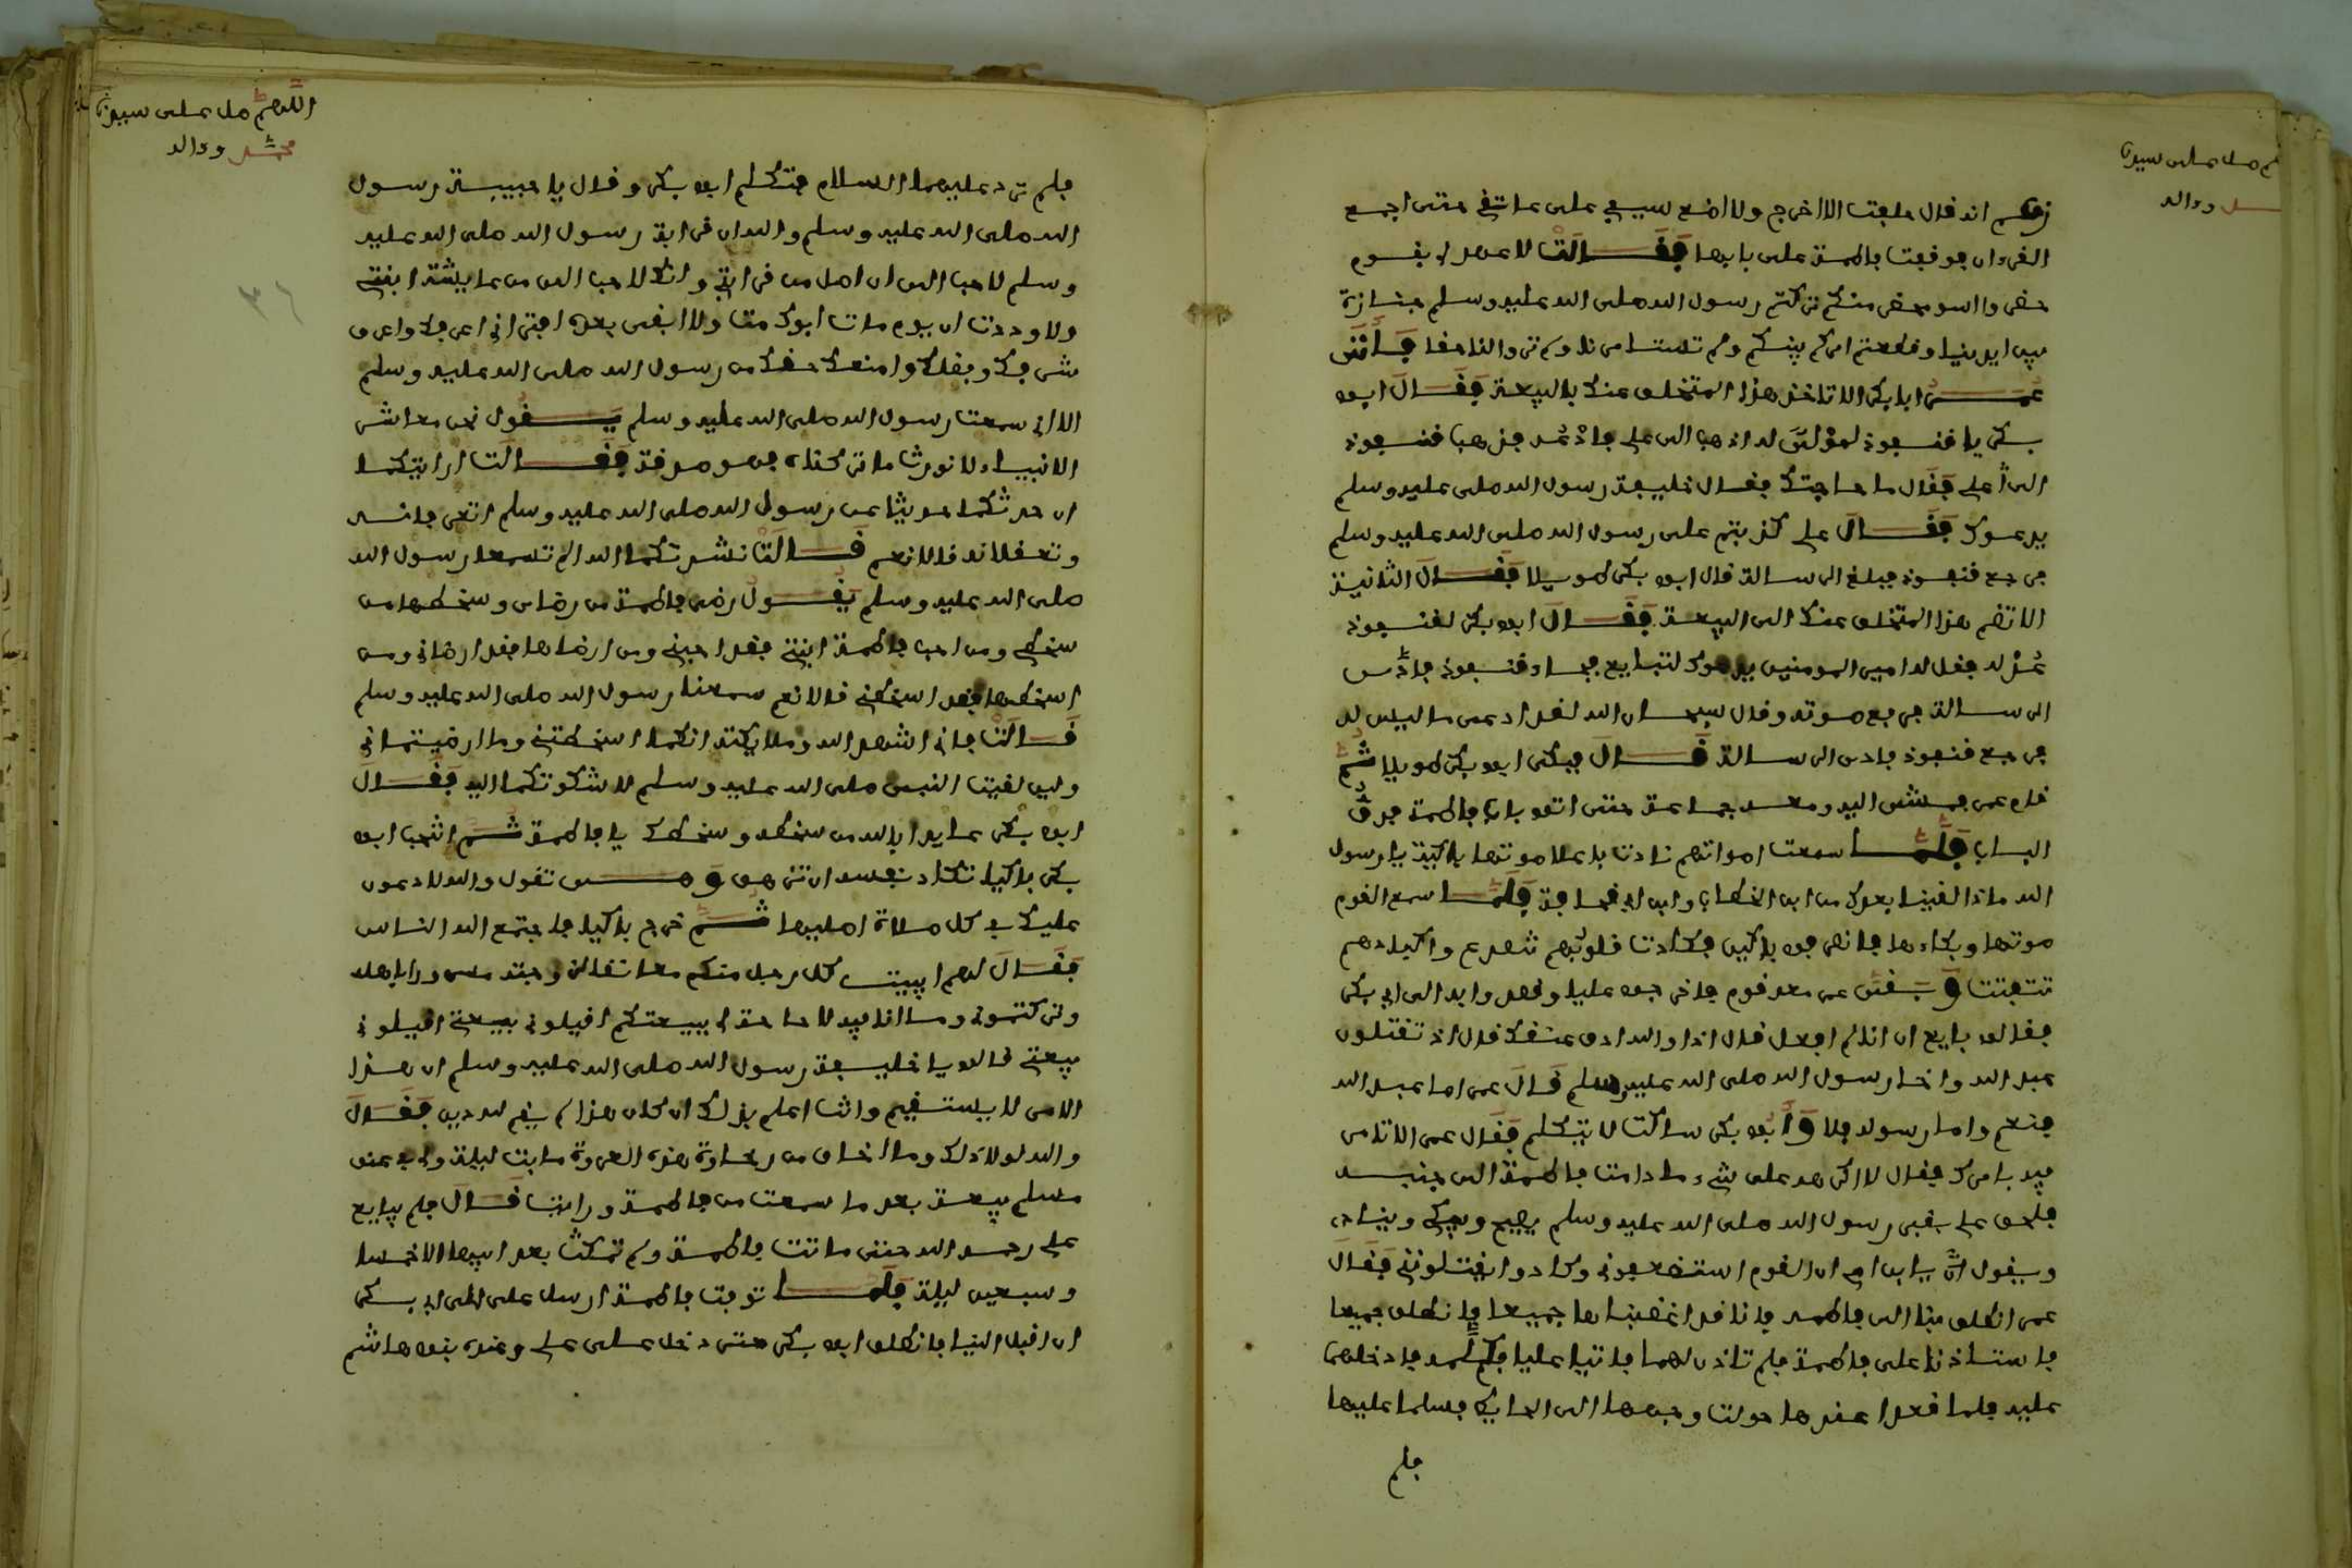 زعم انه قال حلفت الا اخرج ولا اضع سيفي على عاتقي حتى اجمع
القرءان فوقفت فاطمة على بابها فقالت لا عهد لي بقوم
حضروا اسو محضر منكم تركتم رسول الله صلى الله عليه وسلم جنازة
بين ايدينا وقطعتم امركم بينكم ولم تستامرنا ولم تروا لنا حقا فأتى
عمر ابا بكر الا تاخذ هذا المتخلف عنك بالبيعة فقال ابو
بكر يا قنفوذ لمولى له اذهب الى علي فادعه فذهب قنفوذ
الى علي فقال ما حاجتك فقال خليفة رسول الله صلى عليه وسلم
يدعوك فقال علي كذبتم على رسول الله صلى الله عليه وسلم
فرجع قنفوذ فبلغ الرسالة قال ابو بكر طويلا فقال الثانية
الا تضم هذا المتخلف عنك الى البيعة فقال ابو بكر لقنفوذ
عد له فقل له امير المومنين يدعوك لتبايع فجاء قنفوذ فادى
الرسالة فرفع صوته وقال سبحان الله لقد ادعى ما ليس له
فرجع قنفوذ فادى الرسالة قال فبكى ابو بكر طويلا ثم
قام عمر فمشى اليه ومعه جماعة حتى اتو باب فاطمة فدق
الباب فلما سمعت اصواتهم نادت باعلا صوتها باكية يا رسول
الله ماذا لقينا بعدك من ابن الخطاب وابن ابي قحافة فلما سمع القوم
صوتها وبكاءها فانصرفوا باكين فكادت قلوبهم تصدع واكبادهم
تتفتت وبقى عمر معه قوم فاخرجوا عليا ومضوا به الى ابي بكر
فقالو بايع ان انا لم افعل قال اذا والله ادق عنقك قال اذ تقتلون
عبد الله واخا رسول الله صلى الله عليه وسلم قال عمر اما عبد الله
فنعم واما رسوله فلا وأبو بكر ساكت لا يتكلم فقال عمر الا تامر
فيه بامرك فقال لا اكرهه على شيء ما دامت فاطمة الى جنبه
فلحق علي بقبر رسول الله صلى الله عليه وسلم يصيح ويبكي وينادي
ويقول يا ابن ام ان القوم استضعفوني وكادوا يقتلونني فقال
عمر انطلق بنا الى فاطمه فانا قد اغضبناها جميعا فانطلق جميعا
فاستاذنا على فاطمة فلم تاذن لهما فاتيا عليا فكلمه فادخلهما
عليه فلما قعدا عندها حولت وجهها الى الحايط فسلما عليها
فلم
اللهم صل على سيدنا
محمد وءاله
فلم ترد عليهما السلام فتكلم ابو بكر وقال يا حبيبة رسول
الله صلى الله عليه وسلم والله ان قرابة رسول الله صلى الله عليه
وسلم لاحب الي ان اصل من قرابتي وانك لاحب الي من عايشة ابنتي
ولوددت ان يوم مات ابوك مت ولا ابقى بعده افتراني اعرفك واعرف
شرفك وفضلك وامنعك حقك من رسول الله صلى الله عليه وسلم
الا اني سمعت رسول الله صلى الله عليه وسلم يقول نحن معاشر
الانبياء لا نورث ما تركناه فهو صدقة فقالت ارايتكما
ان حدثتكما حديثا عن رسول الله صلى الله عليه وسلم اتعرفانه
وتعقلانه قالا نعم قالت نشدتكما الله الم تسمعا رسول الله
صلى الله عليه وسلم يقول رضى فاطمة من رضاي وسخطها من
سخطي ومن احب فاطمة ابنتي فقد احبني ومن ارضاها فقد ارضاني ومن
اسخطها فقد اسخطني قالا نعم سمعنا رسول الله صلى الله عليه وسلم
قالت فاني اشهد الله وملايكته انكما اسخطتني وما ارضيتماني
ولين لقيت النبي صلى الله عليه وسلم لاشكوتكما اليه فقال
ابو بكر عايدا بالله من سخطه وسخطك يا فاطمة ثم انتحب ابو
بكر باكيا تكاد نفسه ان تزهق وهي تقول والله لادعون
عليك في كل صلاة اصليها ثم خرج باكيا فاجتمع اليه الناس
فقال لهم ايبيت كل رجل منكم معانقا لزوجته مسرورا باهله
وتركتموني وما انا فيه لا حاجة لي ببيعتكم اقيلوني بيعتي اقيلوني
بيعتي قالو يا خليفة رسول الله صلى الله عليه وسلم ان هذا
الامر لا يستقيم وانت اعلم بذلك ان كان هذا لم يقم لله دين فقال
والله لولا ذلك وما اخاف من رخاوة هذه العروة ما بت ليلة ولي في عنق
مسلم بيعة بعد ما سمعت من فاطمة ورايت قال فلم يبايع
علي رحمه الله حتى ماتت فاطمة ولم تمكث بعد ابيها الا خمسا
وسبعين ليلة فلما توفت فاطمة ارسل علي الى ابي بكر
ان اقبل الينا فانطلق ابو بكر حتى دخل على علي وعنده بنو هاشم